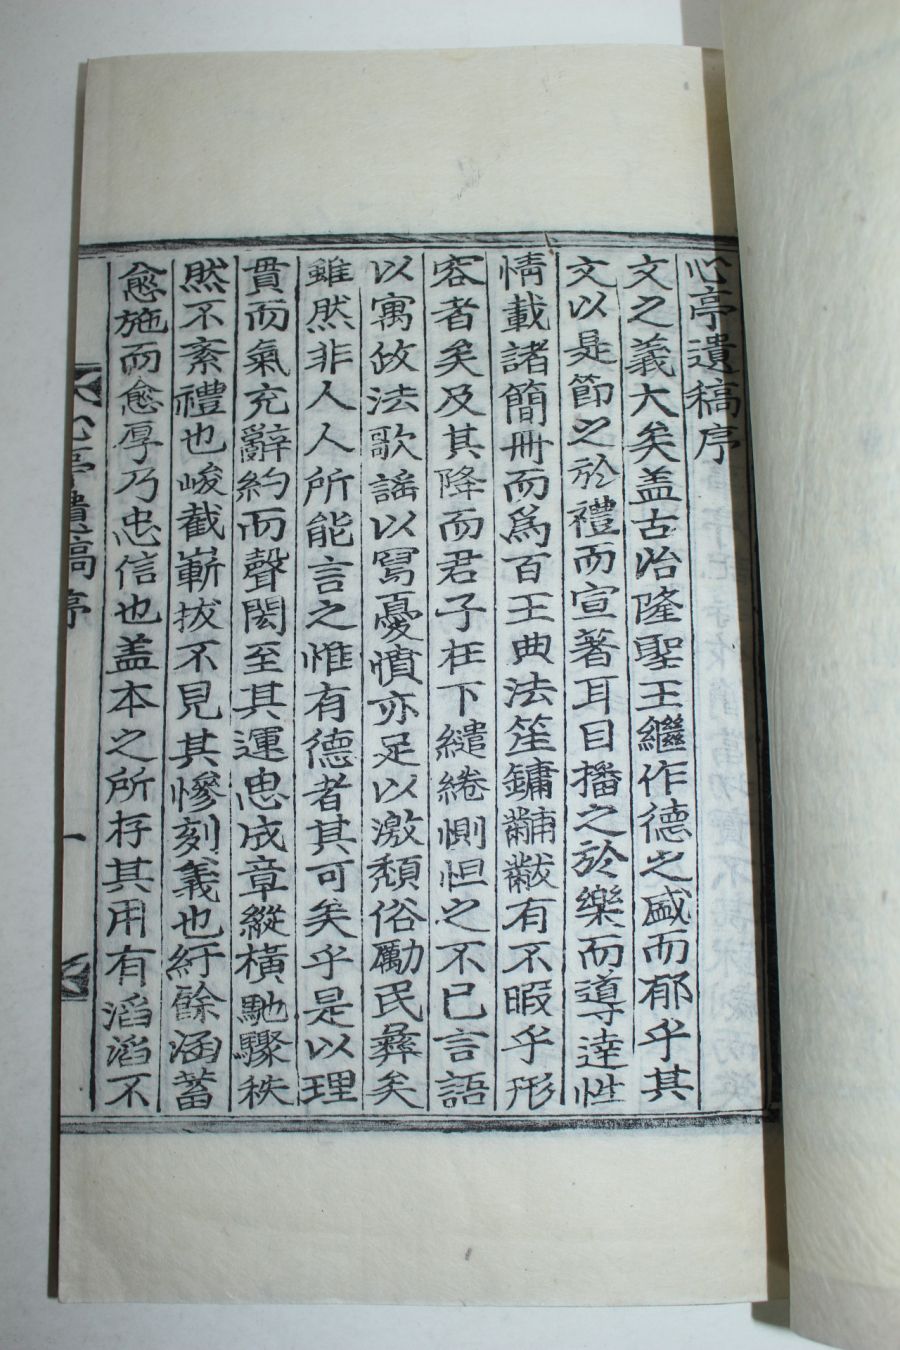 心亭遺稿序
文之義大矣盖古治隆聖王繼作德之盛而郁乎其
文以是節之於禮而宣著耳目播之於樂而導達性
情載諸簡冊而爲百王典法笙鏞黼黻有不暇乎形
容者矣及其降而君子在下繾綣惻怛之不已言語
以寓攸法歌謠以寫憂憤亦足以激頹俗勵民彛矣
雖然非人人所能言之惟有德者其可矣乎是以理
貫而氣充辭約而聲閎至其運思成章縱橫馳驟秩
然不紊禮也峻截嶄拔不見其慘刻義也紆餘涵蓄
愈施而愈厚乃忠信也盖本之所存其用有滔滔不
心亭遺稿序
一